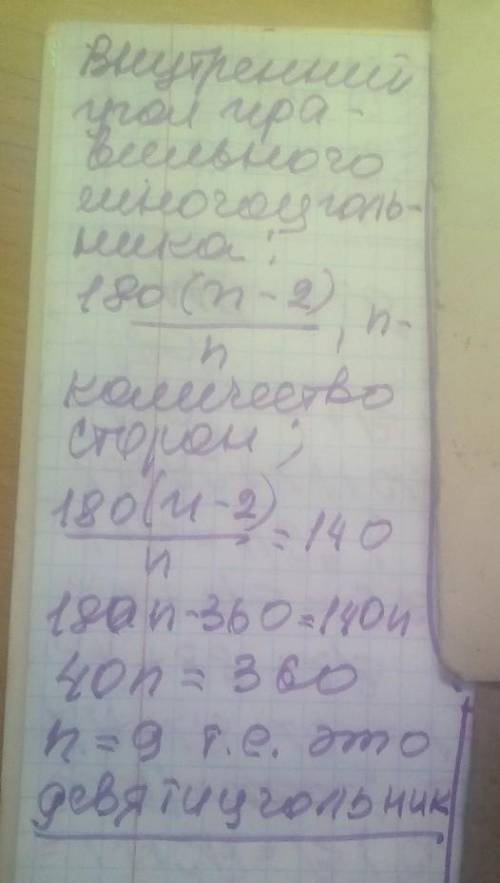 Внутренний
угол пра-
вильного
многоуголь-
ника:
180(n-2)
n
, n-
количество
сторон;
180(n-2)
n
=140
180n-360=140n
40n=360
n=9 т.е. это
девятиугольник